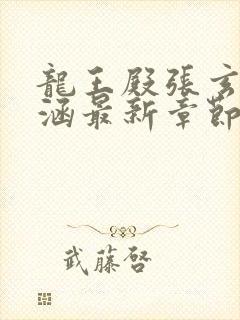 龍王殿張玄
涵最新章節
武藤啓